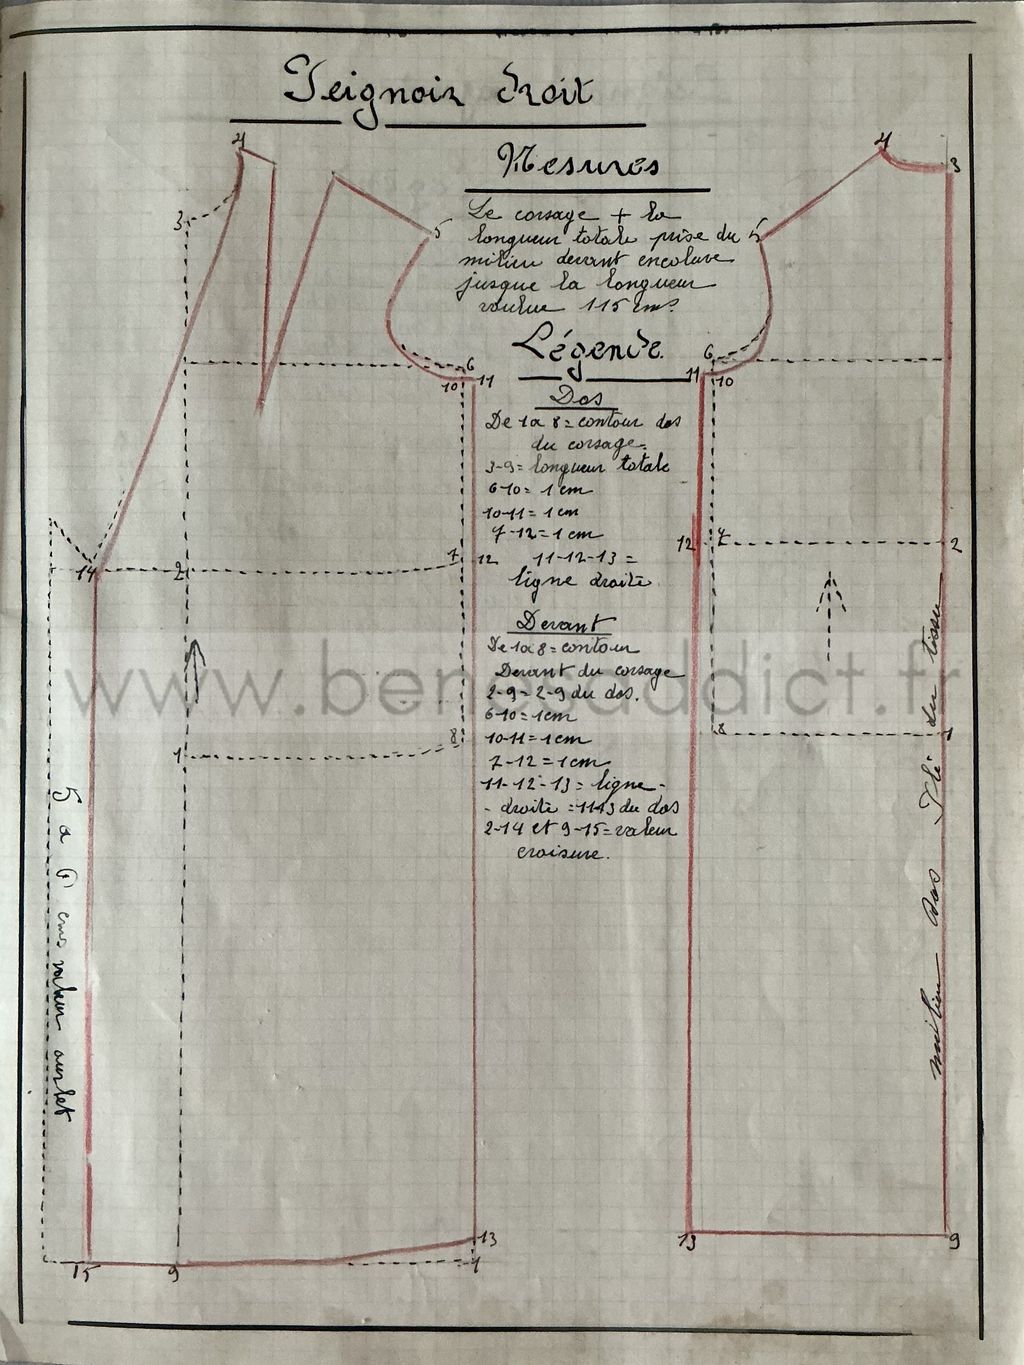 Peignoir droit
Mesures
Le corsage + la
longueur totale prise du
milieu devant encolure
jusque la longueur
voulue 115 cm?
Légende
Dos
De 1 a 8 = contour dos
du corsage.
3-9 = longueur totale
6-10 = 1 cm
10-11 = 1 cm
7-12 = 1 cm
11-12-13 =
ligne droite
Devant
De 1 a 8 = contour
Devant du corsage
2-9 = 2-9 du dos.
6-10 = 1 cm
10-11 = 1 cm
7-12 = 1 cm
11-12-13 = ligne -
- droite = 11-13 du dos
2-14 et 9-15 = valeur
croisure.
4
3
5
6
10
11
14
2
7
12
1
8
13
15
9
1
5 a 6 cms valeur ourlet
4
3
5
6
11
10
12
7
2
8
1
13
9
milieu dos Pli du tissu
www.benesaddict.fr